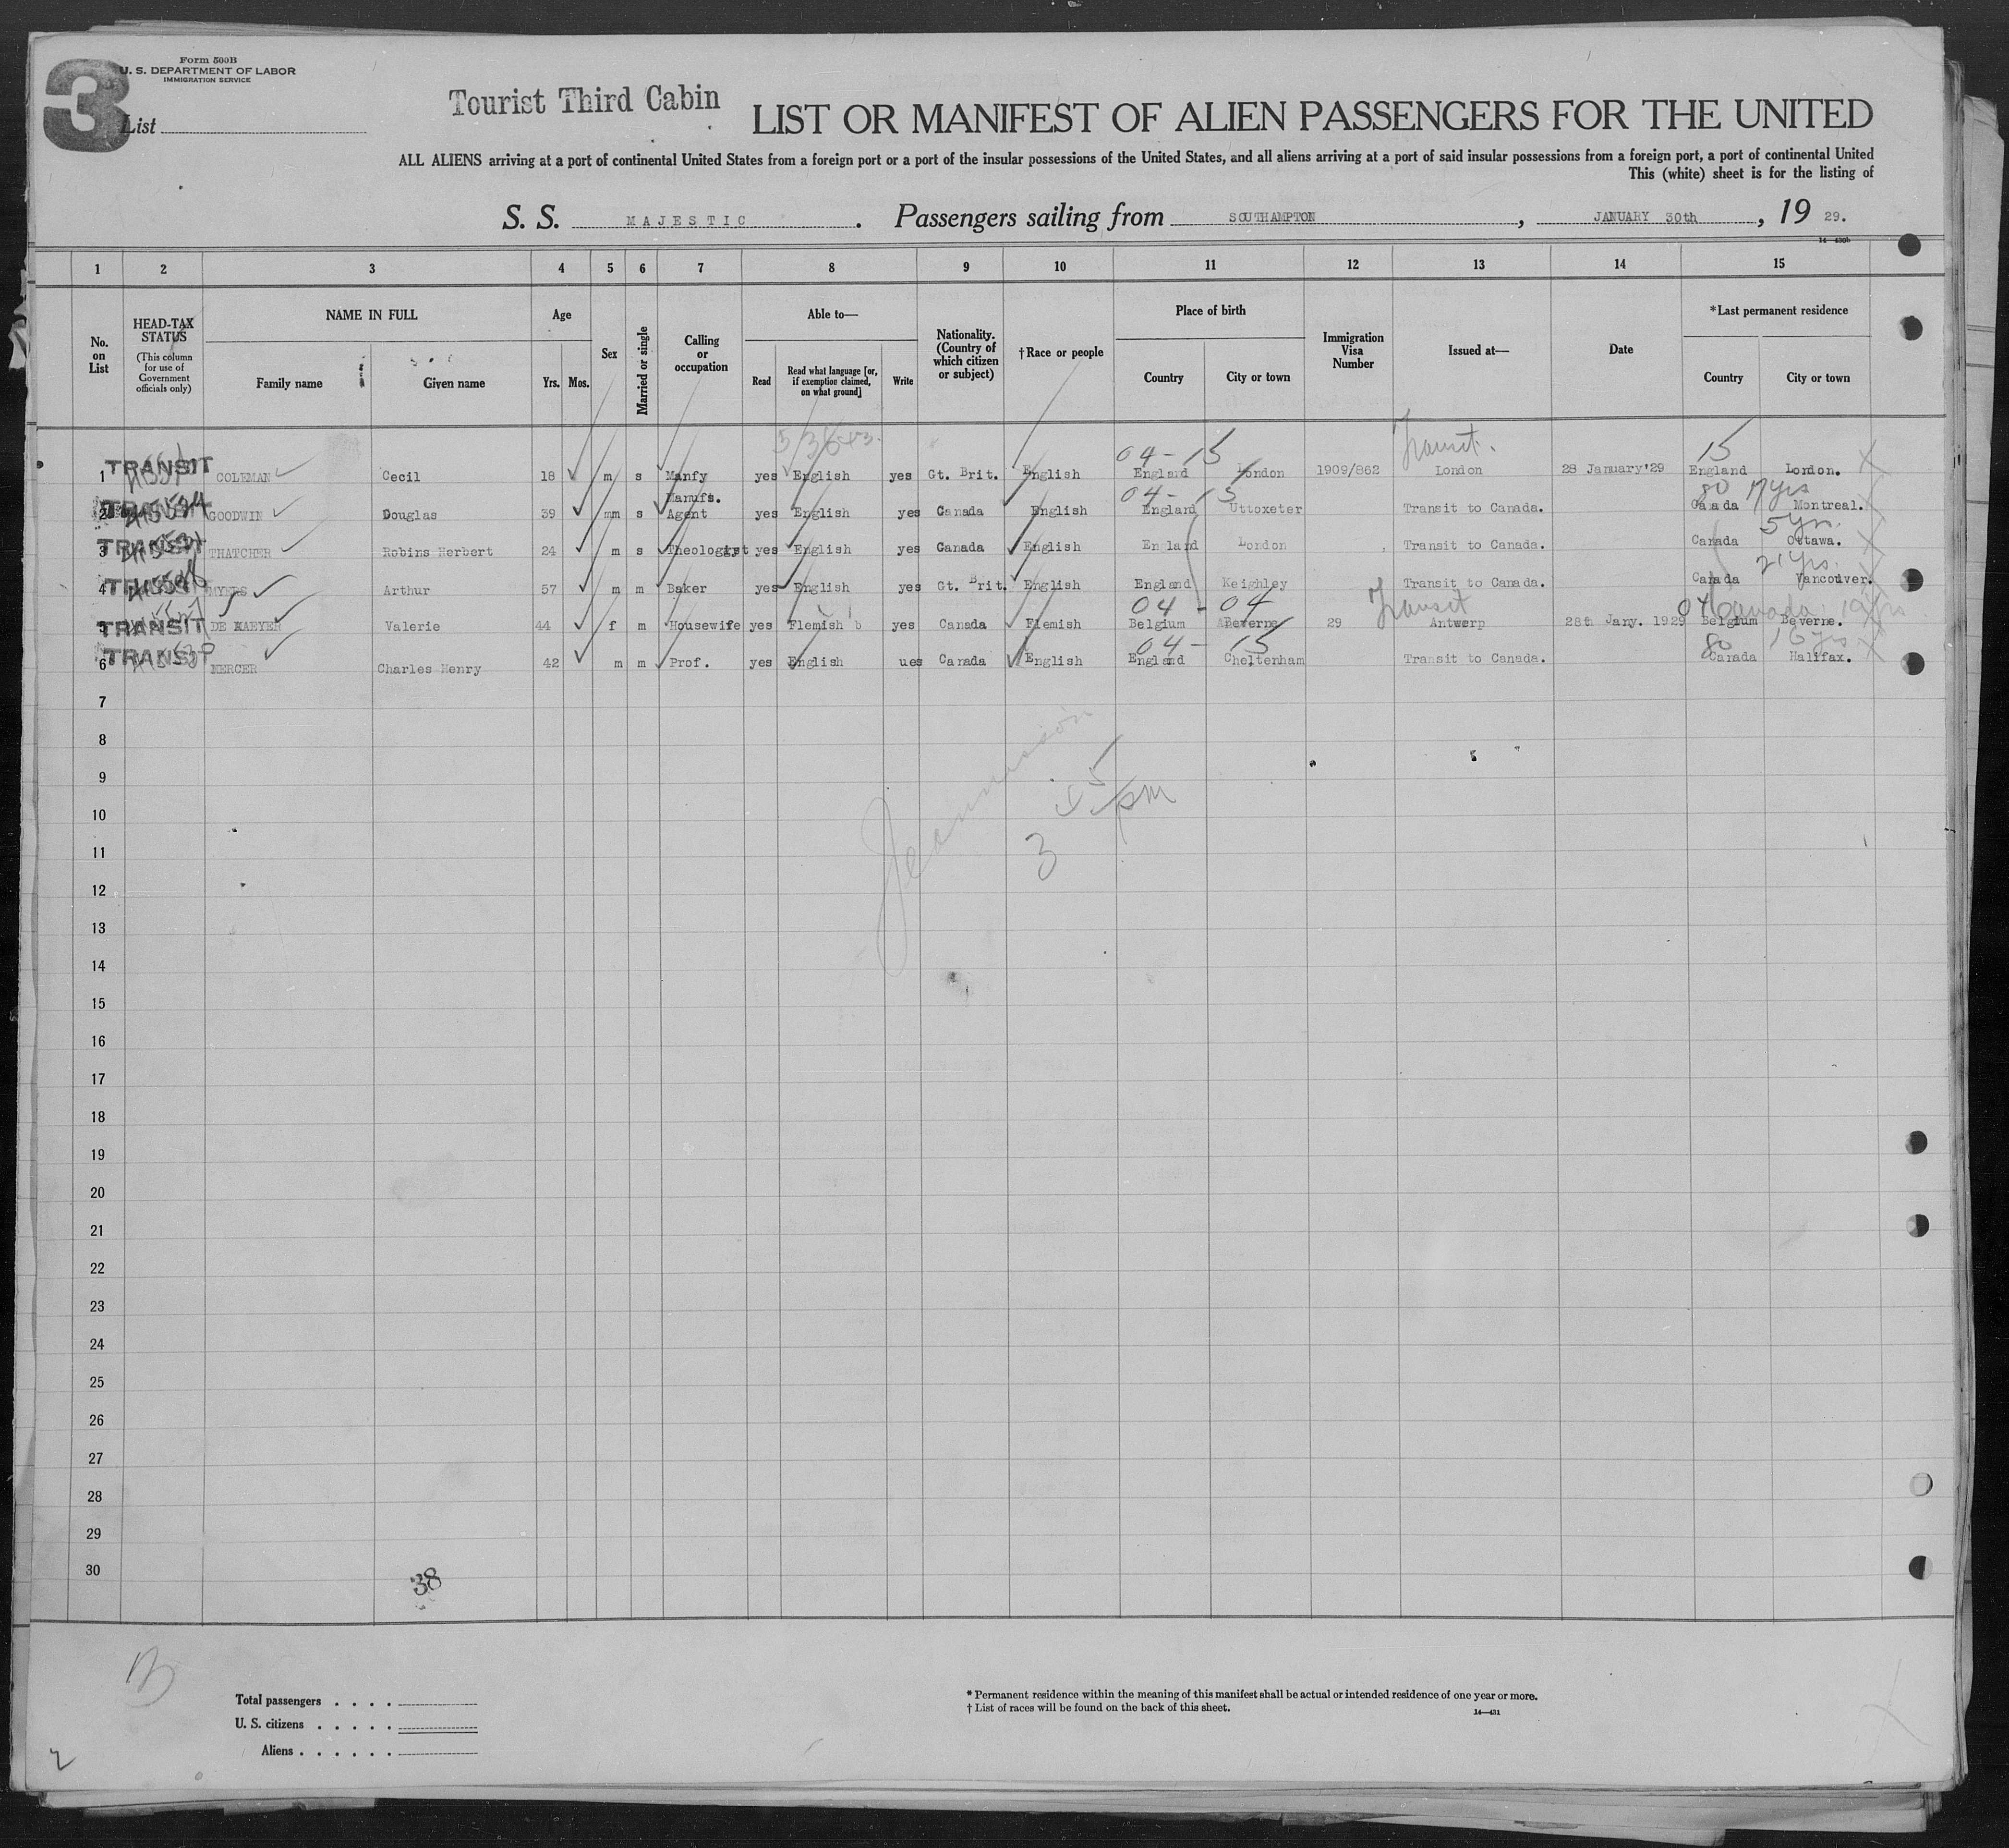 3
Form 500B
U. S. DEPARTMENT OF LABOR
IMMIGRATION SERVICE
List
Tourist Third Cabin
LIST OR MANIFEST OF ALIEN PASSENGERS FOR THE UNITED
ALL ALIENS arriving at a port of continental United States from a foreign port or a port of the insular possessions of the United States, and all aliens arriving at a port of said insular possessions from a foreign port, a port of continental United
This (white) sheet is for the listing of
S. S. MAJESTIC. Passengers sailing from SOUTHAMPTON, JANUARY 30th, 19 29.
14—430b
1 2 3 4 5 6 7 8 9 10 11 12 13 14 15
No. on List
HEAD-TAX STATUS
(This column for use of Government officials only)
NAME IN FULL
Family name
Given name
Age
Yrs. Mos.
Sex
Married or single
Calling or occupation
Able to—
Read
Read what language [or, if exemption claimed, on what ground]
Write
Nationality. (Country of which citizen or subject)
†Race or people
Place of birth
Country
City or town
Immigration Visa Number
Issued at—
Date
*Last permanent residence
Country
City or town
04 - 15 Transit. 15
1 TRANSIT COLEMAN Cecil 18 m s Manfy yes English yes Gt. Brit. English England London 1909/862 London 28 January'29 England London.
Manufs. 04 - 15 80 17 yrs
2 TRANSIT GOODWIN Douglas 39 mm s Agent yes English yes Canada English England Uttoxeter Transit to Canada. Canada Montreal.
5 yrs.
3 TRANSIT THATCHER Robins Herbert 24 m s Theologist yes English yes Canada English England London Transit to Canada. Canada Ottawa.
21 yrs.
4 TRANSIT MYERS Arthur 57 m m Baker yes English yes Gt. Brit. English England Keighley Transit to Canada. Canada Vancouver.
04 - 04 Transit 04 Canada 19 yrs
5 TRANSIT DE KAEYER Valerie 44 f m Housewife yes Flemish b yes Canada Flemish Belgium Beverne 29 Antwerp 28th Jany. 1929 Belgium Beverne.
04 - 15 80 16 yrs
6 TRANSIT MERCER Charles Henry 42 m m Prof. yes English ues Canada English England Cheltenham Transit to Canada. Canada Halifax.
7
8
9
10
3 55 pm
11
12
13
14
15
16
17
18
19
20
21
22
23
24
25
26
27
28
29
30
38
Total passengers . . . .
U. S. citizens . . . . .
Aliens . . . . . .
* Permanent residence within the meaning of this manifest shall be actual or intended residence of one year or more.
† List of races will be found on the back of this sheet.
14—431
2